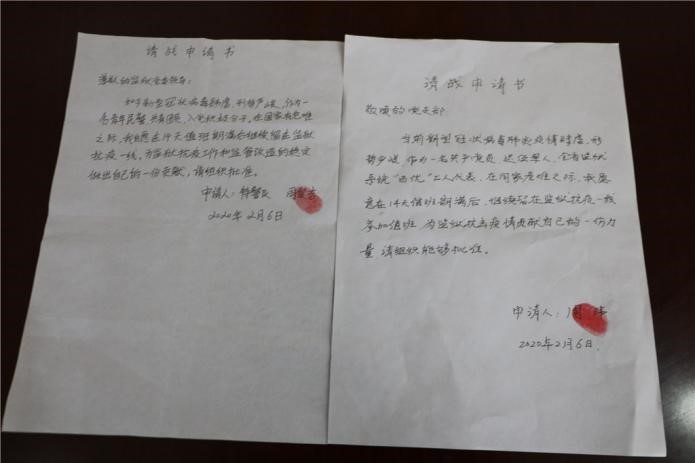 请战申请书
尊敬的监狱党委领导：
如今新型冠状病毒肆虐，形势严峻，作为一
名青年民警，共青团员，入党积极分子，在国家有危难
之际，我愿在14天值班期满后继续留在监狱
抗疫一线，为监狱抗疫工作和监管改造的稳定
做出自己的一份贡献，请组织批准。
申请人：
2020年2月6日
请战申请书
敬爱的党支部
当前新型冠状病毒肺炎疫情肆虐，形
势严峻，作为一名共产党员、退伍军人、全省监狱
系统“百优”工人代表，在国家危难之际，我愿
意在14天值班期满后，继续留在监狱抗疫一线
参加值班，为监狱抗击疫情贡献自己的一份力
量，请组织能够批准。
申请人：周
2020年2月6日